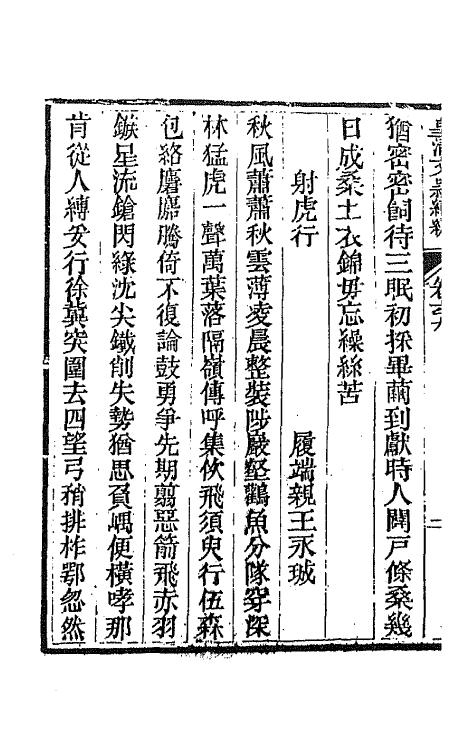 皇清文穎續編 卷六
猶密密飼待三眠初採畢繭到獻時人閉戶條桑幾
日成桑土衣錦毋忘繰絲苦
射虎行 履端親王永珹
秋風蕭蕭秋雲薄凌晨整裝陟巖壑鸛魚分隊穿深
林猛虎一聲萬葉落隔嶺傳呼集佽飛須臾行伍森
包絡麏麚騰倚不復論鼓勇爭先期翦惡箭飛赤羽
鏃星流鎗閃綠沈尖鐵削失勢猶思負嵎便橫哮那
肯從人縛爰行徐冀突圍去四望弓矟排柞鄂忽然